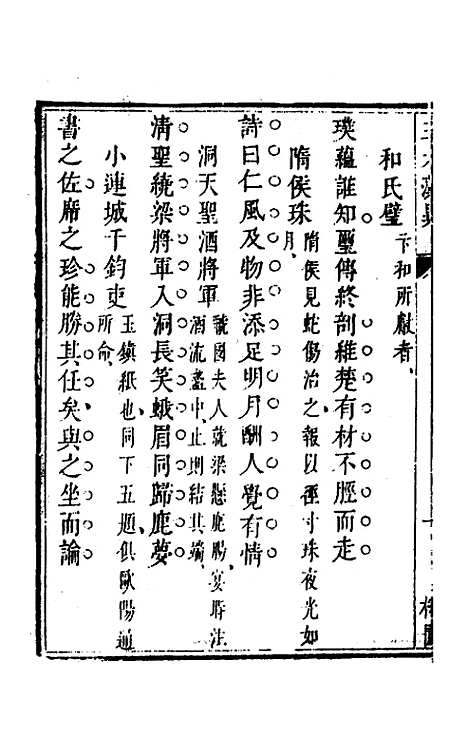 和氏璧 卞和所獻者
璞蘊誰知璽傳終剖維楚有材不脛而走
隋侯珠 隋侯見蛇傷治之報以徑寸珠夜光如月
詩曰仁風及物非添足明月酬人覺有情
洞天聖酒將軍 虢國夫人就梁懸鹿腸宴時注酒流盞中止則結其端
清聖統梁將軍入洞長笑蛾眉同歸鹿夢
小連城千鈞吏 玉鎮紙也同下五題俱歐陽通所命
書之佐席之珍能勝其任矣與之坐而論